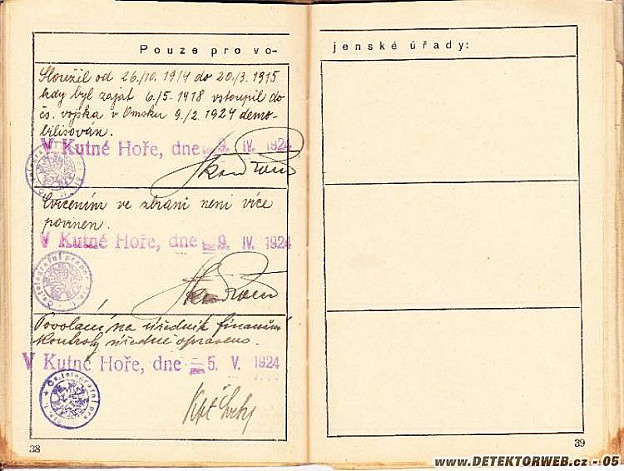 Pouze pro vo-
jenské úřady:
Sloužil od 26/10. 1914 do 20/3. 1915
kdy byl zajat 6/5. 1918 vstoupil do
čs. vojska v Omsku 9/2. 1921 demo-
bilisován.
V Kutné Hoře, dne 9. IV. 1924
Cvičením ve zbrani není více
povinen.
V Kutné Hoře, dne 9. IV. 1924
Povolání na úředník finanční
kontroly úředně opraveno.
V Kutné Hoře, dne 5. V. 1924
38
39
www.DETEKTORWEB.cz - 05